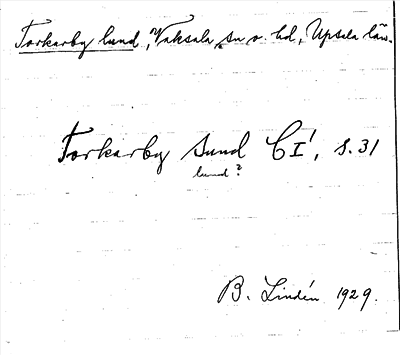 Torkarby lund, Vaksala sn o. hd, Upsala län.
Torkarby Sund CI¹, s. 31
lund?
B. Lindén 1929.